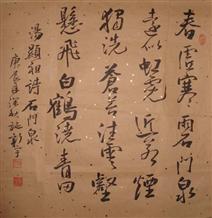 春虛寒雨石門泉
遠似虹霓近若煙
獨洗蒼苔注雲壑
懸飛白鶴繞青田
湯顯祖詩石門泉
庚辰年深秋施